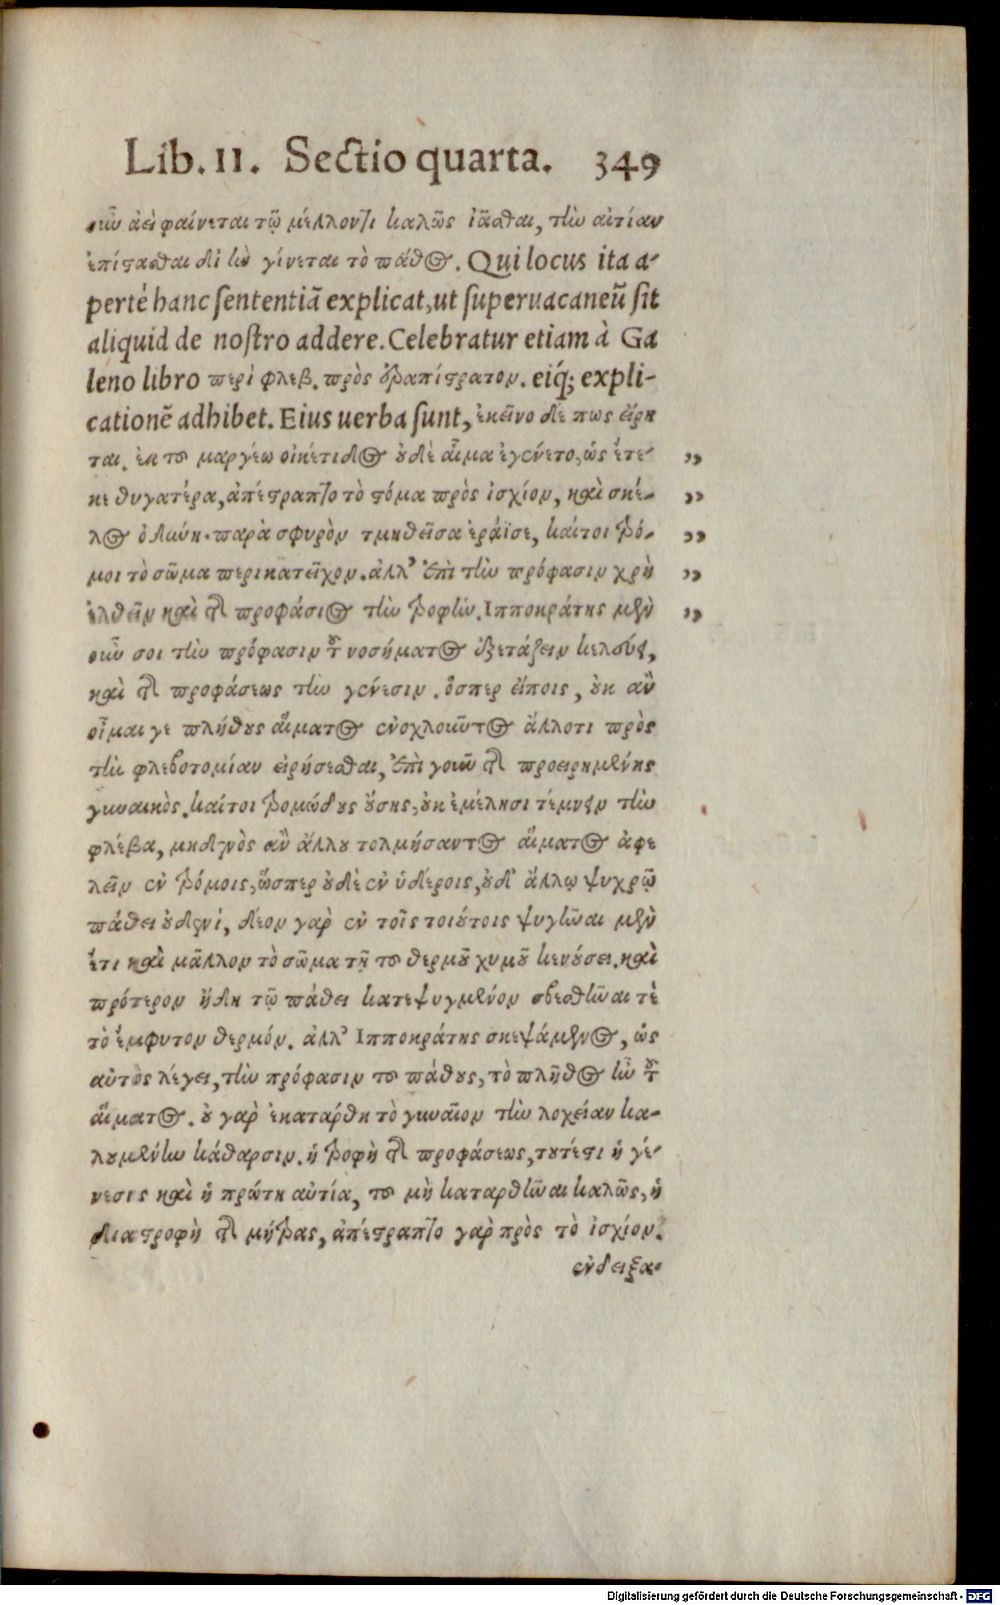 Lib. II. Sectio quarta. 349
οὖν ἀεὶ φαίνεται τῷ μέλλοντι καλῶς ἰᾶσθαι, τὴν αἰτίαν
ἐπίστασθαι δι' ἣν γίνεται τὸ πάθος. Qui locus ita a-
perté hanc sententiā explicat, ut superuacaneū sit
aliquid de nostro addere. Celebratur etiam à Ga
leno libro περὶ φλεβ. πρὸς ἐραπίστρατον. eiq́; expli-
cationē adhibet. Eius uerba sunt, ἐκεῖνο δέ πως εἴρη
ται. ἐκ τοῦ μαργέω οἰκέτιδος οὐδὲ αἷμα ἐγένετο, ὡς ἔτε- „
κε θυγατέρα, ἀπέστραπτο τὸ στόμα πρὸς ἰσχίον, καὶ σκέ- „
λος ὀδύνη. παρὰ σφυρὸν τμηθεῖσα ἐράϊσε, καίτοι τρό- „
μοι τὸ σῶμα περικατεῖχον. ἀλλ' ἐπὶ τὴν πρόφασιν χρὴ „
ἐλθεῖν καὶ τῆς προφάσιος τὴν τροφήν. Ἱπποκράτης μὲν „
οὖν σοι τὴν πρόφασιν τοῦ νοσήματος ἐξετάζειν κελεύει,
καὶ τῆς προφάσεως τὴν γένεσιν. ὅσπερ εἴποις, οὐκ ἂν
οἶμαι γε πλήθους αἵματος ἐνοχλοῦντος ἄλλοτι πρὸς
τὴν φλεβοτομίαν εἰρήσεσθαι, ἐπὶ γοῦν τῆς προειρημένης
γυναικὸς. καίτοι τρομώδους οὔσης, οὐκ ἐμέλησι τέμνειν τὴν
φλέβα, μηδενὸς ἂν ἄλλου τολμήσαντος αἵματος ἀφε
λεῖν ἐν τρόμοις, ὥσπερ οὐδὲ ἐν ὑδέροις, οὐδ' ἄλλῳ ψυχρῷ
πάθει οὐδενί, δέον γὰρ ἐν τοῖς τοιούτοις ψυγῆναι μὲν
ἔτι καὶ μᾶλλον τὸ σῶμα τῇ τοῦ θερμοῦ χυμοῦ κενούσει. καὶ
πρότερον ἤδη τῷ πάθει κατεψυγμένον σβεσθῆναι τὲ
τὸ ἔμφυτον θερμόν. ἀλλ' Ἱπποκράτης σκεψάμενος, ὡς
αὐτὸς λέγει, τὴν πρόφασιν τοῦ πάθους, τὸ πλῆθος ἦν τοῦ
αἵματος. οὐ γὰρ ἐκαταρθη τὸ γυναῖον τὴν λοχείαν κα-
λουμένην κάθαρσιν. ἡ τροφὴ τῆς προφάσεως, τουτέστι ἡ γέ-
νεσις καὶ ἡ πρώτη αὐτία, τοῦ μὴ καταρθῆναι καλῶς, ἡ
διαστροφὴ τῆς μήτρας, ἀπέστραπτο γὰρ πρὸς τὸ ἰσχίον.
ἐνδειξα-
Digitalisierung gefördert durch die Deutsche Forschungsgemeinschaft - DFG